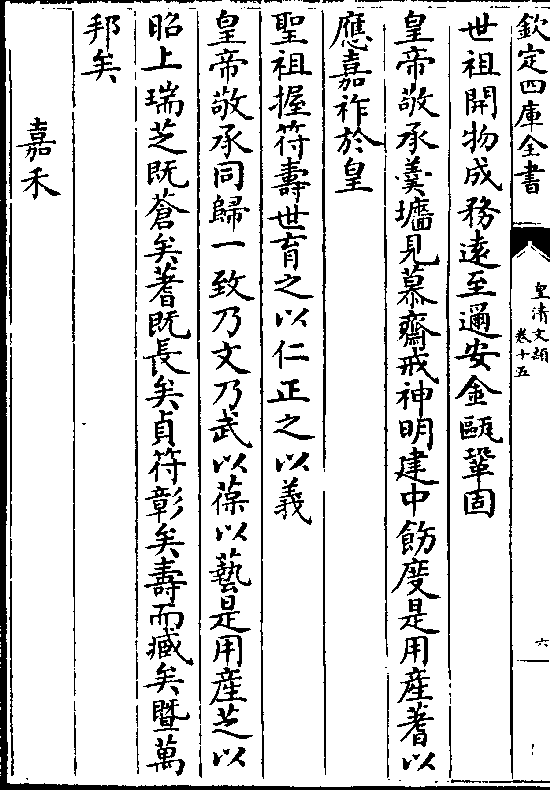 欽定四庫全書
皇清文穎
卷十五
六
世祖開物成務遠至邇安金甌鞏固
皇帝敬承羹墻見慕齋戒神明建中飭度是用產蓍以
應嘉祚於皇
聖祖握符壽世育之以仁正之以義
皇帝敬承同歸一致乃文乃武以葆以藝是用產芝以
昭上瑞芝既蒼矣蓍既長矣貞符彰矣壽而臧矣暨萬
邦矣
嘉禾